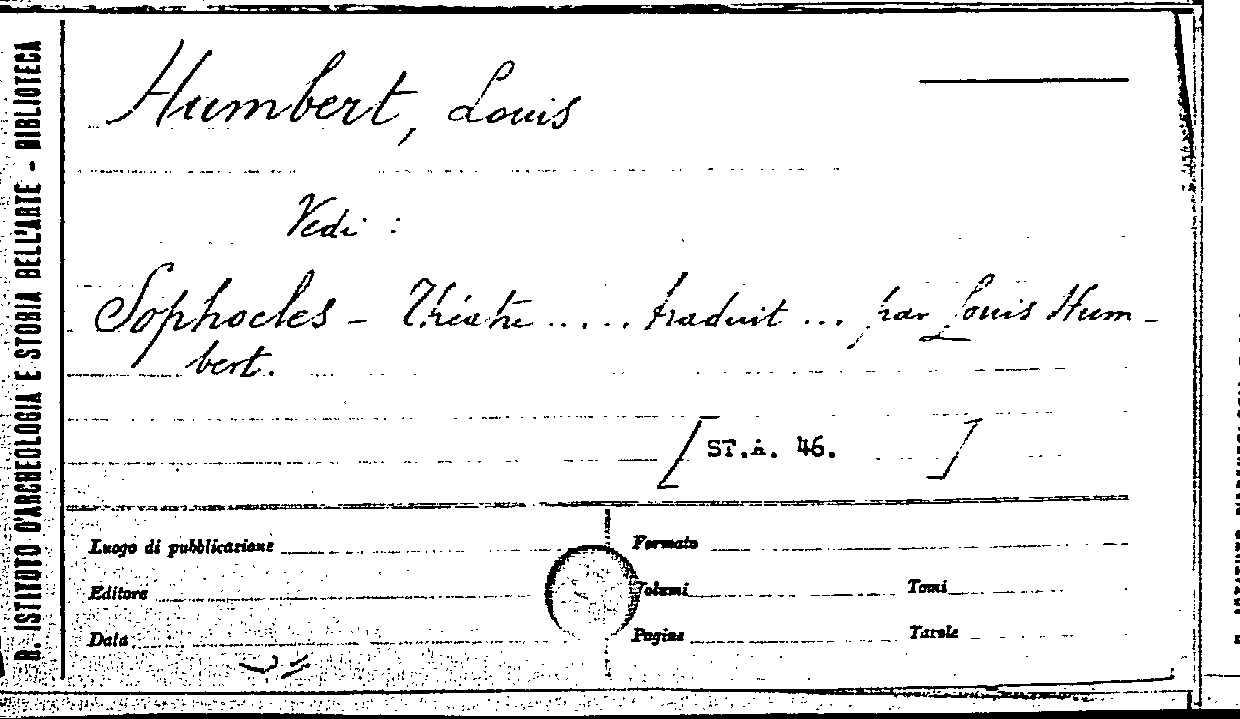 R. ISTITUTO D'ARCHEOLOGIA E STORIA DELL'ARTE - BIBLIOTECA
Humbert, Louis
Vedi :
Sophocles - Théatre ..... traduit ... par Louis Hum-
bert.
[ ST.A. 46. ]
Luogo di pubblicazione
Formato
Editore
Volumi
Tomi
Data
Pagine
Tavole